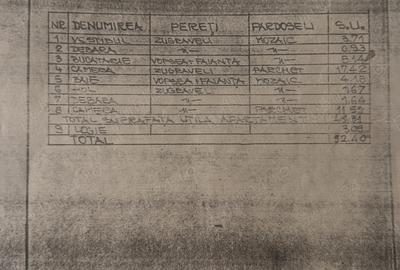 NR DENUMIREA PEREȚI PARDOSELI S.U.
1 VESTIBUL ZUGRAVELI MOZAIC 3.71
2 DEBARA —"— —"— 0.93
3 BUCATARIE VOPSEA+FAIANTA —"—
4 CAMERA ZUGRAVELI PARCHET 17.42
5 BAIE VOPSEA+FAIANTA MOZAIC 4.18
6 HOL ZUGRAVELI —"—
7 DEBARA —"— —"—
8 CAMERA —"— PARCHET
TOTAL SUPRAFATA UTILA APARTAMENT
9 LOGIE
TOTAL 52.40